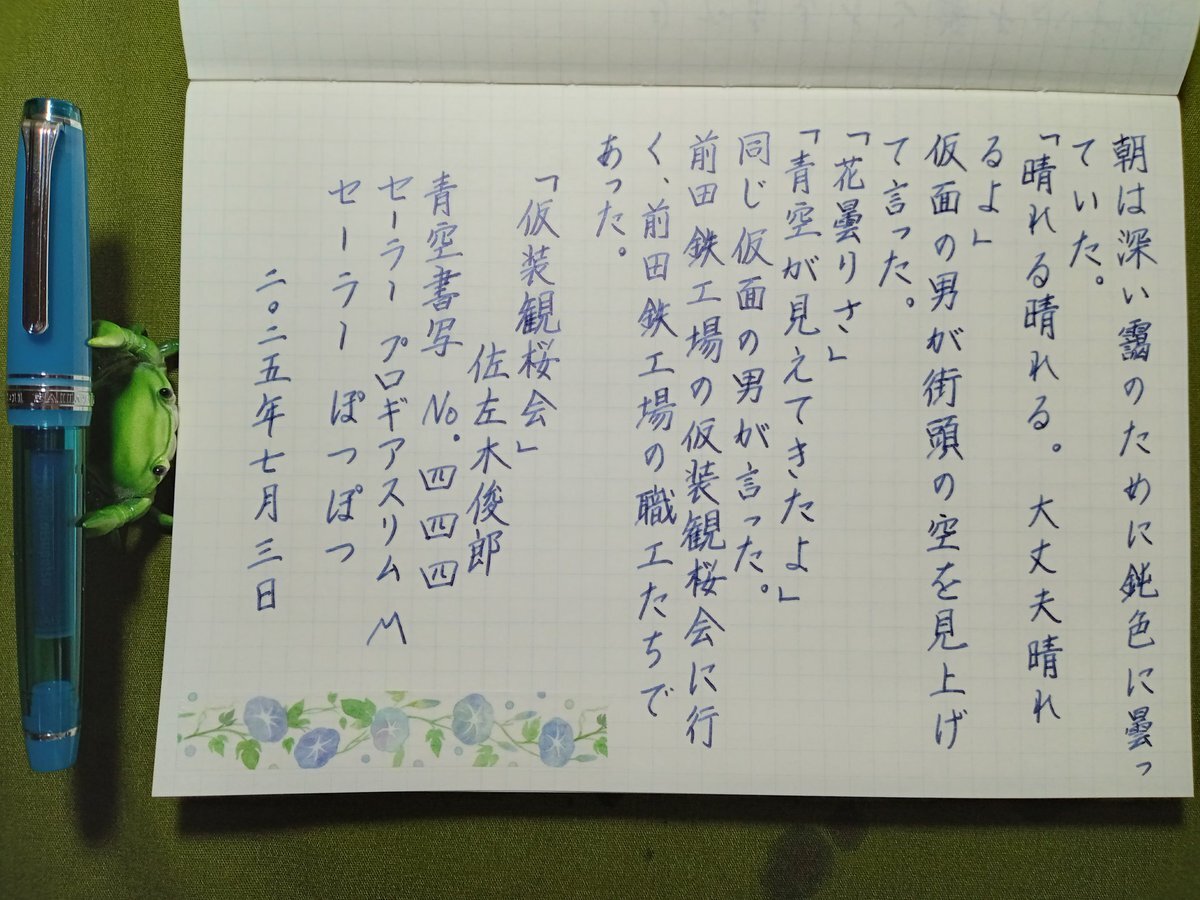 朝は深い靄のために鈍色に曇っ
ていた。
「晴れる晴れる。大丈夫晴れ
るよ」
仮面の男が街頭の空を見上げ
て言った。
「花曇りさ」
「青空が見えてきたよ」
同じ仮面の男が言った。
前田鉄工場の仮装観桜会に行
く、前田鉄工場の職工たちで
あった。
「仮装観桜会」
佐左木俊郎
青空書写 No.四四四
セーラー プロギアスリム M
セーラー ぽつぽつ
二〇二五年七月三日